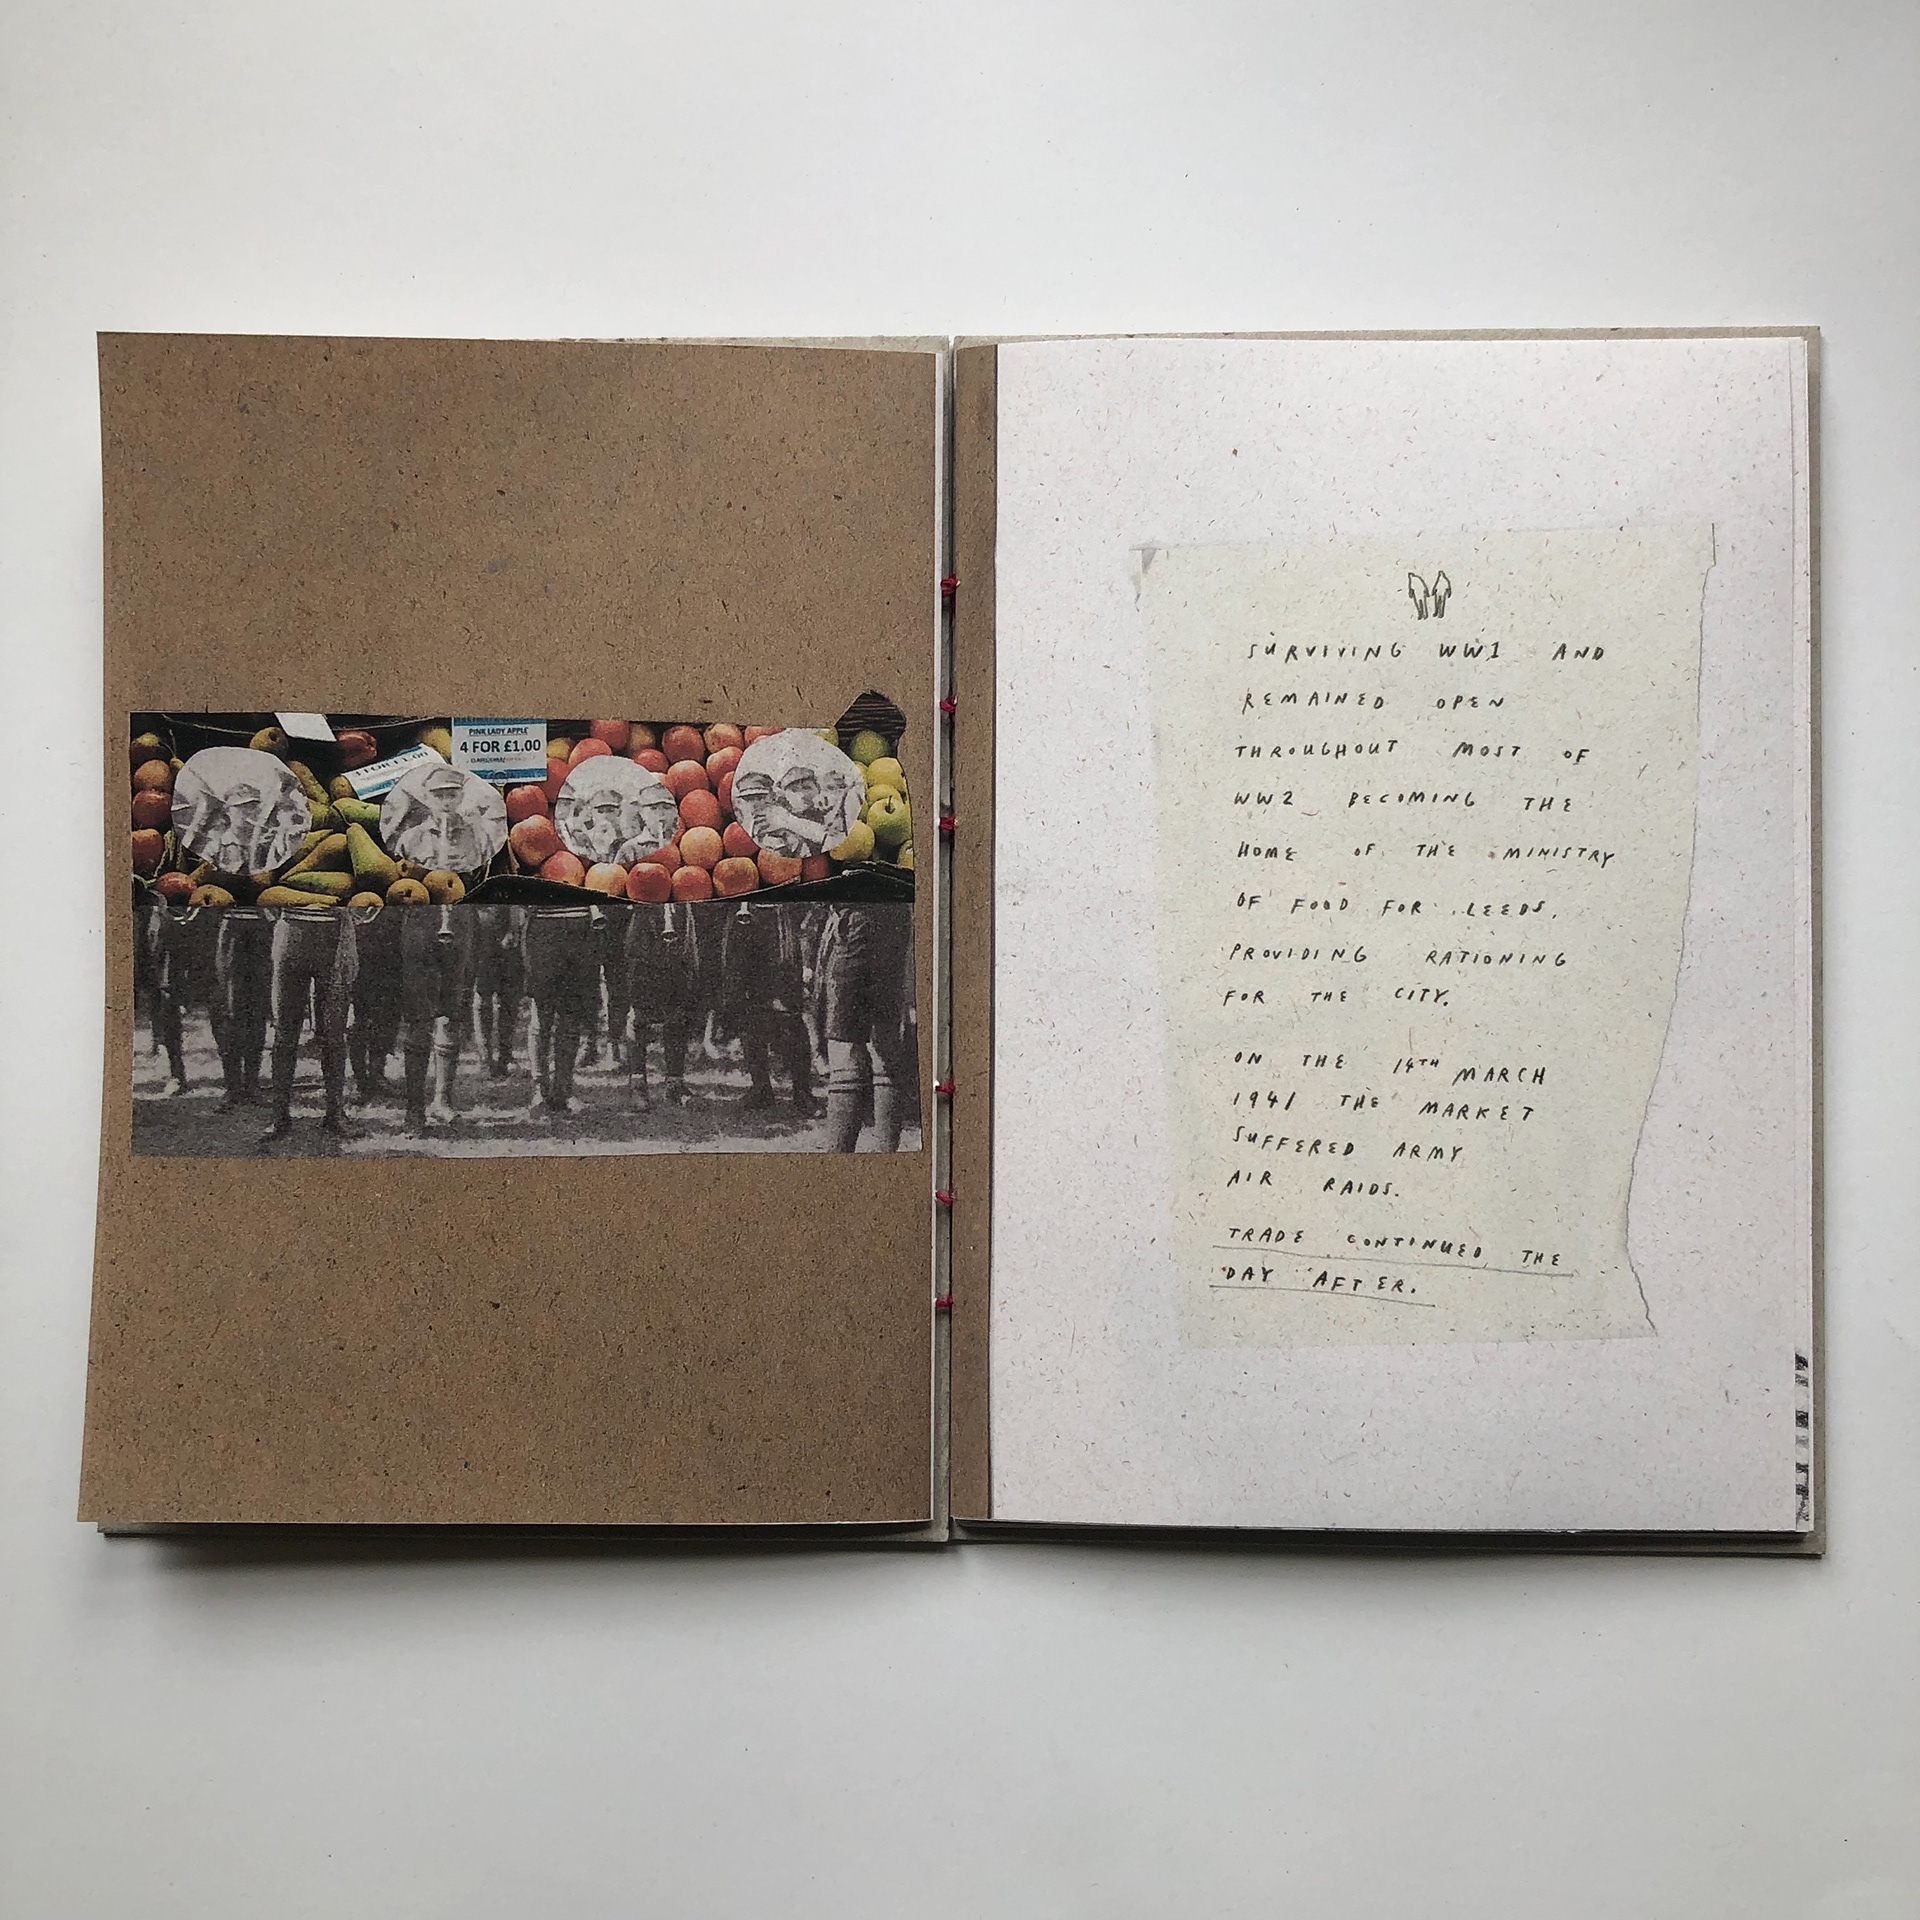 PINK LADY APPLE
4 FOR £1.00
SURVIVING WW1 AND
REMAINED OPEN
THROUGHOUT MOST OF
WW2 BECOMING THE
HOME OF THE MINISTRY
OF FOOD FOR LEEDS,
PROVIDING RATIONING
FOR THE CITY.
ON THE 14TH MARCH
1941 THE MARKET
SUFFERED ARMY
AIR RAIDS.
TRADE CONTINUED THE
DAY AFTER.